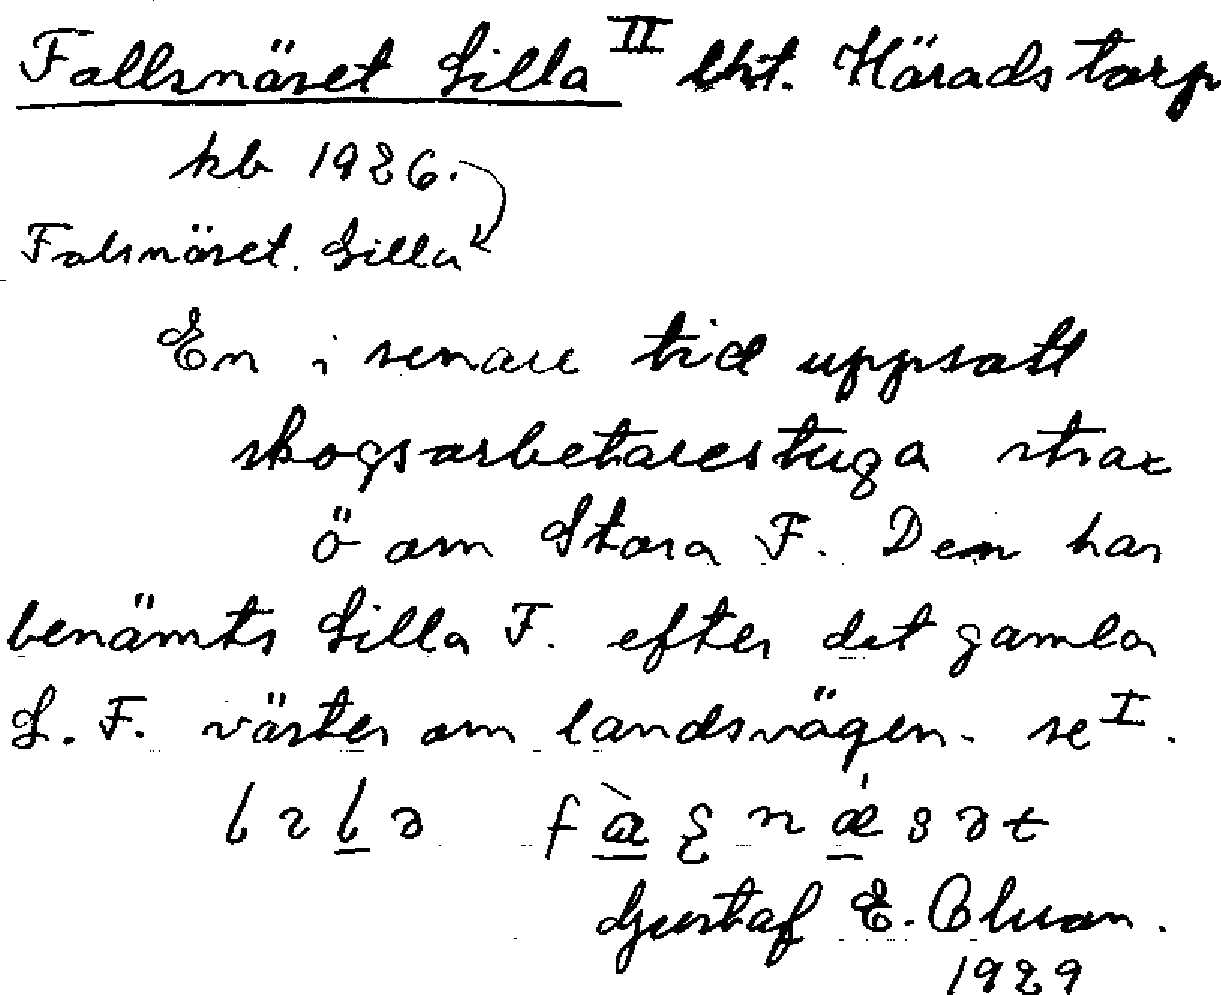 Fallsnäset Lilla II lht. Häradstorp
kb 1926.
Falsnäset. Lilla
En i senare tid uppsatt
skogsarbetarestuga strax
ö om Stora F. Den har
benämts Lilla F. efter det gamla
L. F. väster om landsvägen. se I.
Gustaf E.
1929